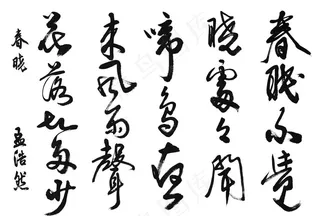 春眠不覺
曉處々聞
啼鳥夜
来风雨聲
花落知多少
春曉
孟浩然